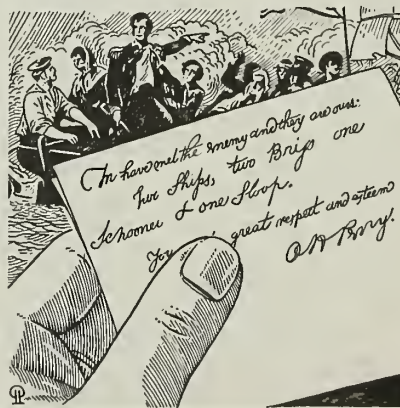 We have met the enemy and they are ours:
two Ships, two Brigs one
Schooner & one Sloop.
great respect and esteem
O H Perry.